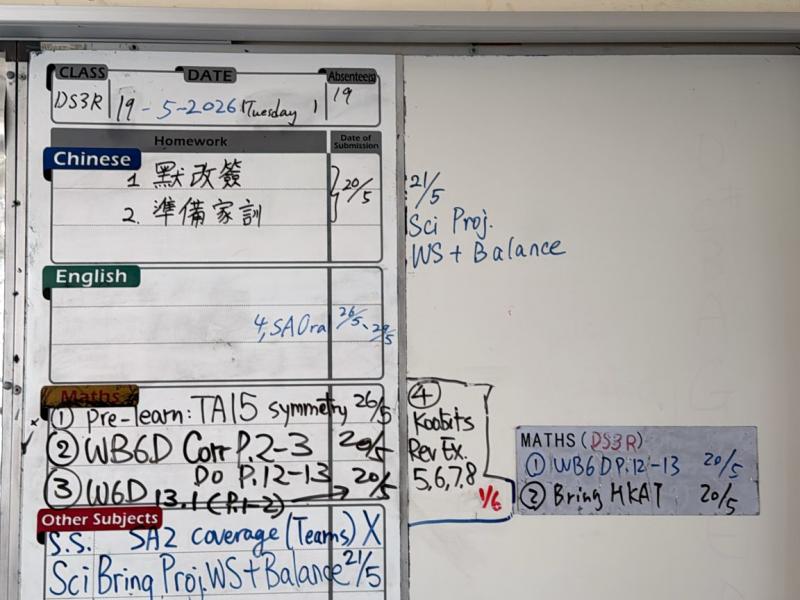 CLASS DATE Absentee(s)
DS3R 19-5-2026 Tuesday 19
Homework Date of Submission
Chinese
1 默改簽 20/5
2. 準備家訓
English
4, SA Oral 26/5、29/5
Maths
① Pre-learn: TA15 symmetry 26/5
② WB6D Corr P.2-3 20/5
Do P.12-13
③ W6D 13.1 (P.1-2) → 20/5
Other Subjects
S.S. SA2 coverage (Teams) X
Sci Bring Proj. WS+Balance 21/5
21/5
Sci Proj.
WS + Balance
④
Koobits
Rev Ex.
5,6,7,8
1/6
MATHS (DS3R)
① WB6D P.12-13 20/5
② Bring HKAT 20/5